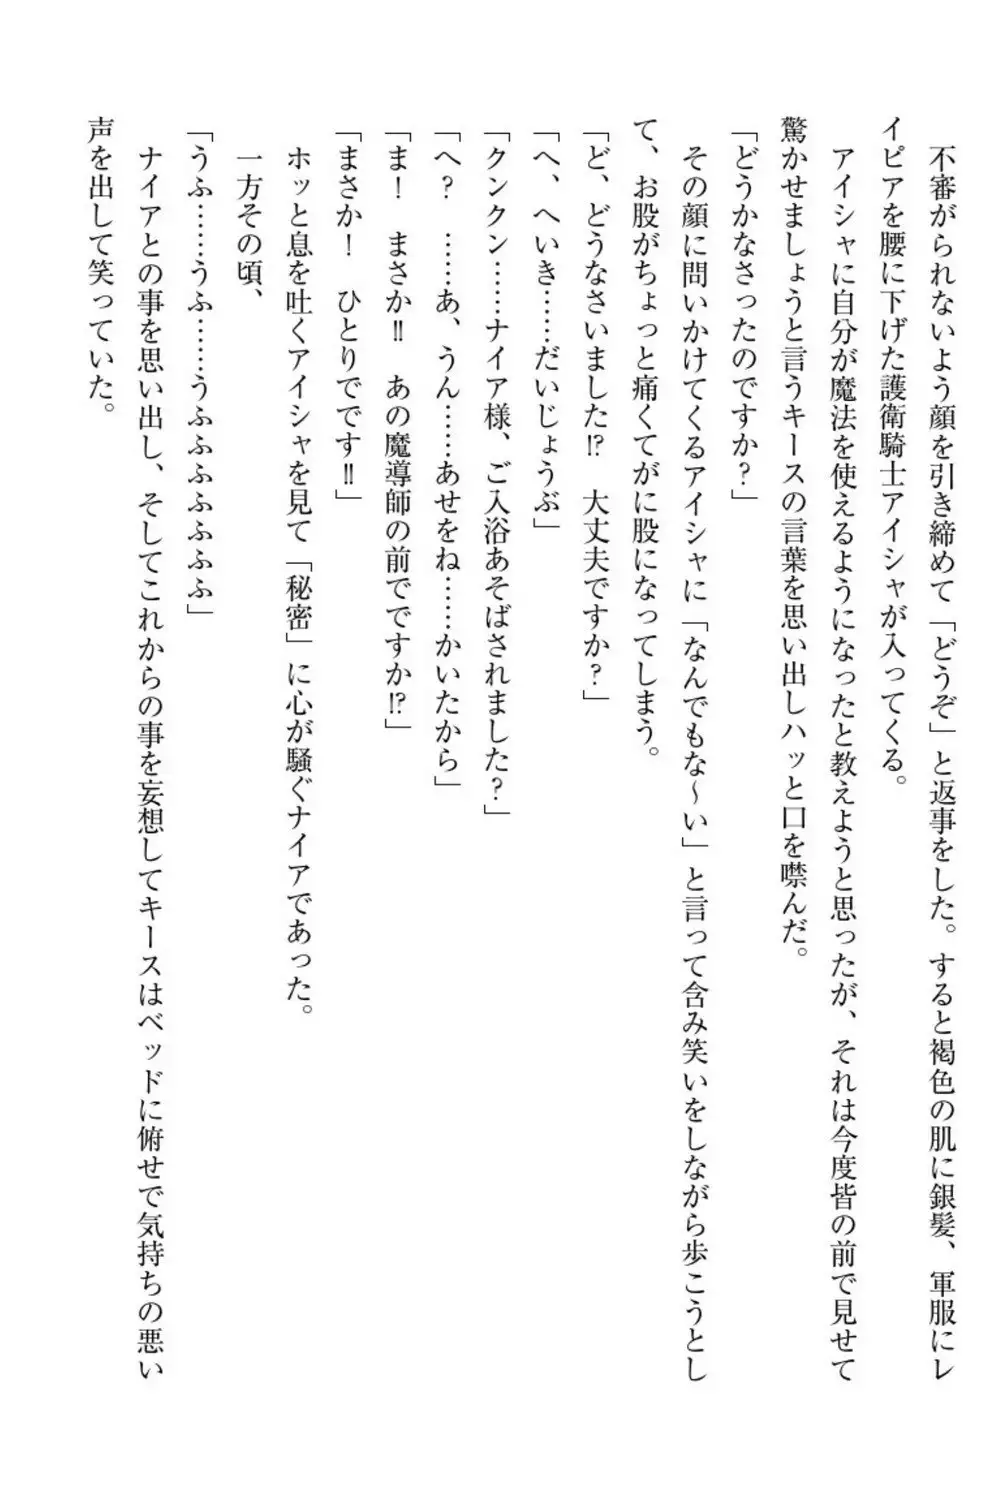 不審がられないよう顔を引き締めて「どうぞ」と返事をした。すると褐色の肌に銀髪、軍服にレ
イピアを腰に下げた護衛騎士アイシャが入ってくる。
アイシャに自分が魔法を使えるようになったと教えようと思ったが、それは今度皆の前で見せて
驚かせましょうと言うキースの言葉を思い出しハッと口を噤んだ。
「どうかなさったのですか？」
その顔に問いかけてくるアイシャに「なんでもな～い」と言って含み笑いをしながら歩こうとし
て、お股がちょっと痛くてがに股になってしまう。
「ど、どうなさいました⁉　大丈夫ですか？」
「へ、へいき……だいじょうぶ」
「クンクン……ナイア様、ご入浴あそばされました？」
「へ？　……あ、うん……あせをね……かいたから」
「ま！　まさか‼　あの魔導師の前でですか⁉」
「まさか！　ひとりでです‼」
ホッと息を吐くアイシャを見て「秘密」に心が騒ぐナイアであった。
一方その頃、
「うふ……うふ……うふふふふふふふ」
ナイアとの事を思い出し、そしてこれからの事を妄想してキースはベッドに俯せで気持ちの悪い
声を出して笑っていた。